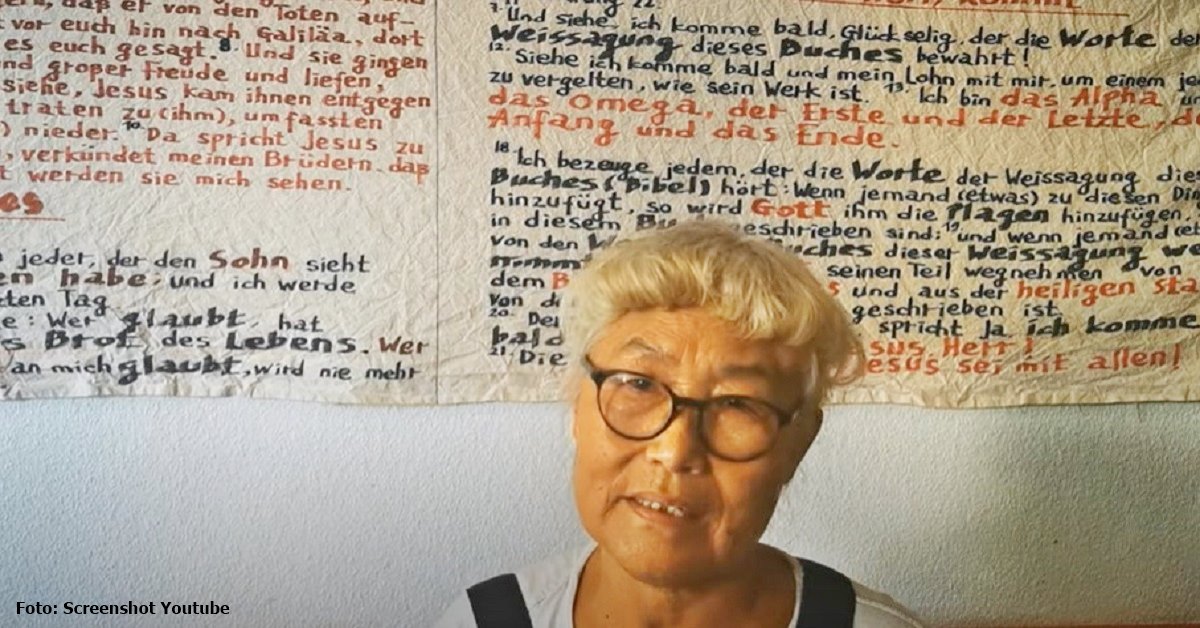 daß er von den Toten auf-
vor euch hin nach Galiläa, dort
es euch gesagt. 8. Und sie gingen
und großer Freude und liefen,
siehe, Jesus kam ihnen entgegen
traten zu (ihm), umfassten
nieder. 10. Da spricht Jesus zu
, verkündet meinen Brüdern, daß
t werden sie mich sehen.
jeder, der den Sohn sieht
en habe, und ich werde
ten Tag
e: Wer glaubt, hat
s Brot des Lebens. Wer
an mich glaubt, wird nie mehr
22.
7. Und siehe, ich komme bald. Glückselig, der die Worte der
Weissagung dieses Buches bewahrt!
12. Siehe ich komme bald und mein Lohn mit mir, um einem je
zu vergelten, wie sein Werk ist. 13. Ich bin das Alpha u
das Omega, der Erste und der Letzte, d
Anfang und das Ende.
18 Ich bezeuge jedem, der die Worte der Weissagung dies
Buches (Bibel) hört: Wenn jemand (etwas) zu diesen Din
hinzufügt, so wird Gott ihm die Plagen hinzufügen,
in diesem Bu geschrieben sind; 19 und wenn jemand (et
von den uches dieser Weissagung we
nimmt seinen Teil wegnehmen von
dem B s und aus der heiligen Sta
von d geschrieben ist.
20. De spricht Ja ich komme
bald sus, Herr!
21. Die esus sei mit allen!
Foto: Screenshot Youtube